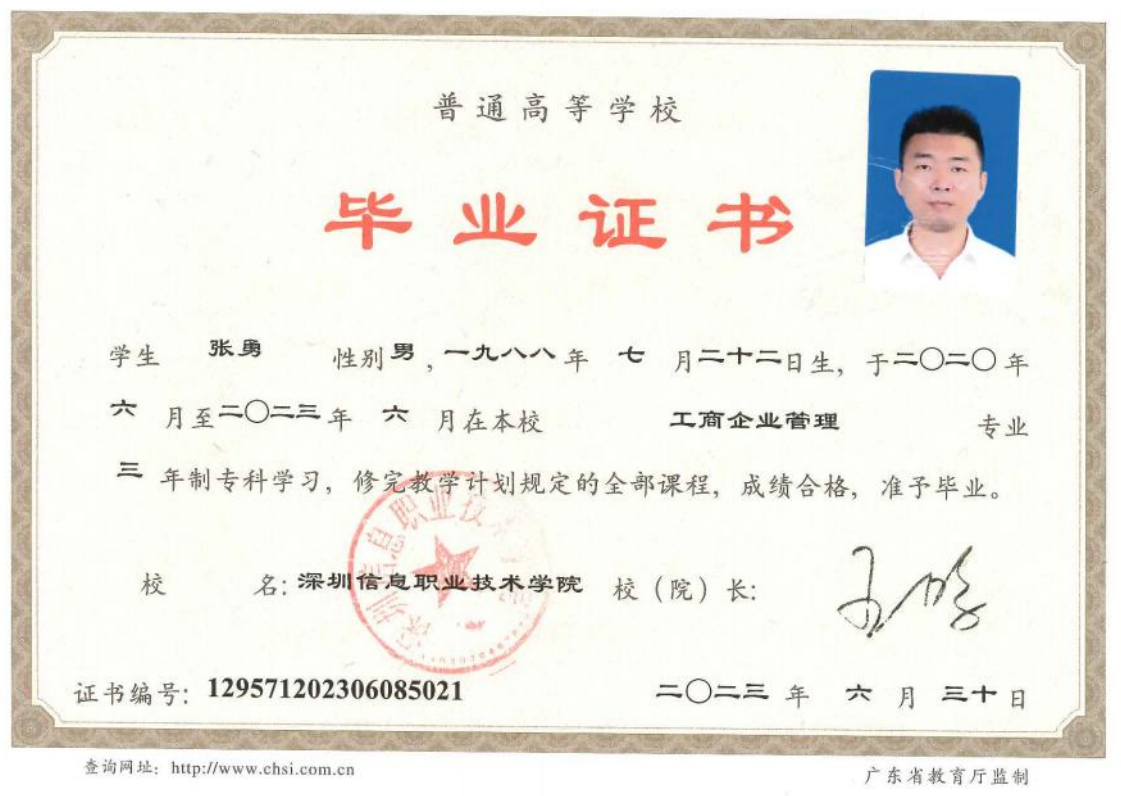 普通高等学校
毕业证书
学生 张勇 性别 男，一九八八年 七 月二十二日生，于二〇二〇年
六 月至二〇二三年 六 月在本校 工商企业管理 专业
三 年制专科学习，修完教学计划规定的全部课程，成绩合格，准予毕业。
深圳信息职业技术
校 名：深圳信息职业技术学院 校（院）长：
证书编号：129571202306085021 二〇二三 年 六 月 三十 日
查询网址：http://www.chsi.com.cn 广东省教育厅监制